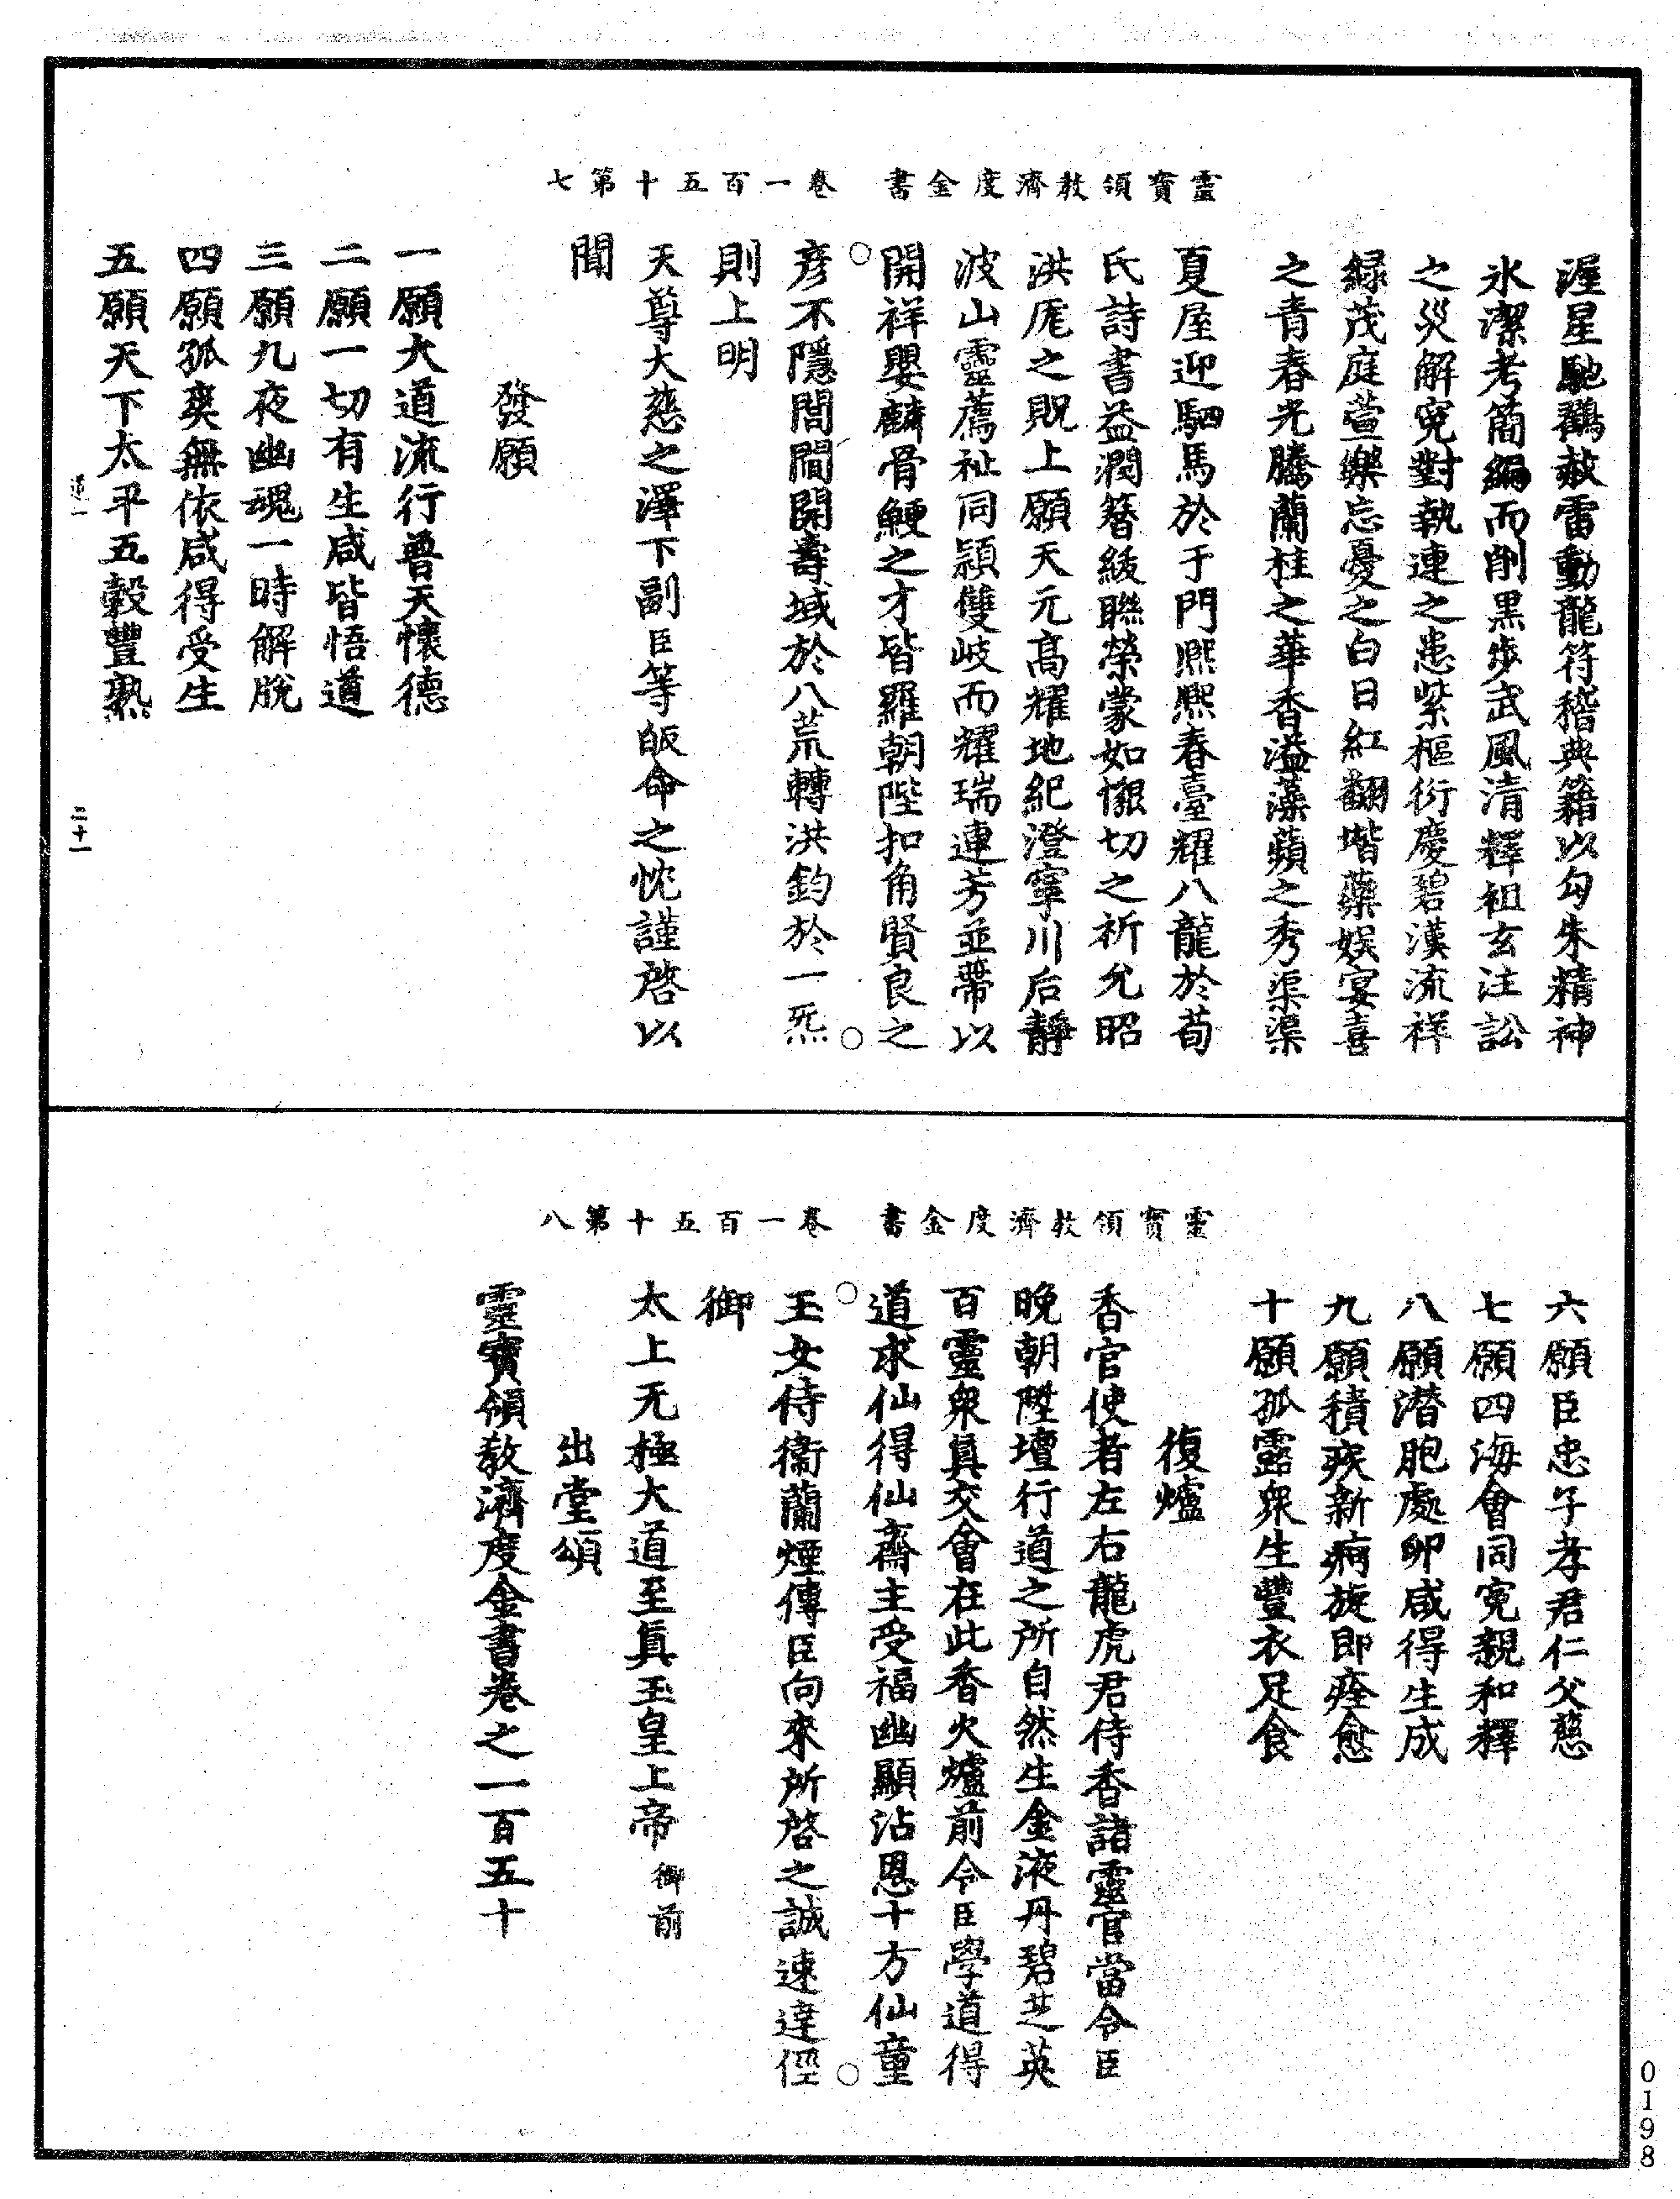 靈寶領教濟度金書　卷一百五十第七
渥星馳鶴赦雷動龍符稽典籍以勾朱精神
氷潔考簡編而削黒步武風清釋祖玄注訟
之災解寃對執連之患紫樞衍慶碧漢流祥
緑茂庭萱樂忘憂之白日紅翻堦藥娛宴喜
之青春光騰蘭桂之華香溢藻蘋之秀渠渠
夏屋迎駟馬於于門熙熙春臺耀八龍於荀
氏詩書益潤簪紱聮榮蒙如懇切之祈允昭
洪庬之貺上願天元高耀地紀澄寧川后靜
波山靈薦祉同穎雙岐而耀瑞連芳並蔕以
開祥嬰麟骨鯁之才皆羅朝陛扣角賢良之
彦不隱閭閻開壽域於八荒轉洪鈞於一炁
則上明
天尊大慈之澤下副臣等皈命之忱謹啓以
聞
發願
一願大道流行普天懷德
二願一切有生咸皆悟道
三願九夜幽魂一時解脫
四願孤爽無依咸得受生
五願天下太平五穀豐熟
二十一
靈寶領教濟度金書　卷一百五十第八
六願臣忠子孝君仁父慈
七願四海會同寃親和釋
八願潜胞處卵咸得生成
九願積疾新病旋即痊愈
十願孤露衆生豐衣足食
復爐
香官使者左右龍虎君侍香諸靈官當令臣
晚朝陞壇行道之所自然生金液丹碧芝英
百靈衆眞交會在此香火爐前令臣學道得
道求仙得仙齋主受福幽顯沾恩十方仙童
玉女侍衞蘭煙傳臣向來所啓之誠速達徑
御
太上无極大道至眞玉皇上帝御前
出堂頌
靈寶領教濟度金書卷之一百五十
0198